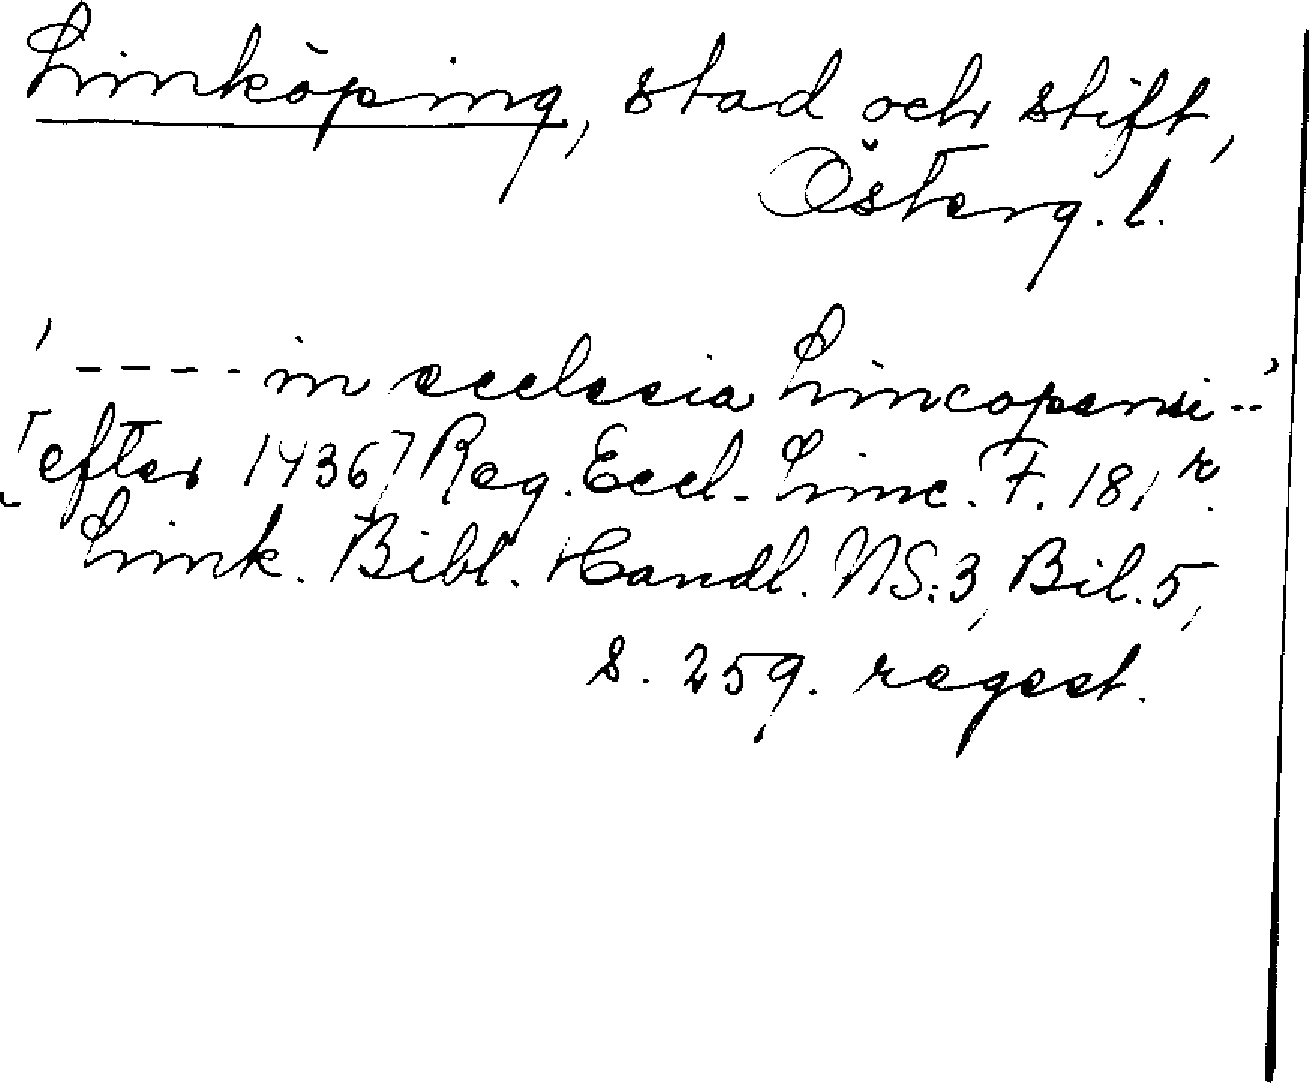 Linköping, stad och stift,
Österg. l.
' ---- in ecclesia Lincopensi --'
[efter 1436] Reg. Eccl. Linc. F. 181 r.
Link. Bibl. Handl. NS:3, Bil. 5,
s. 259. regest.